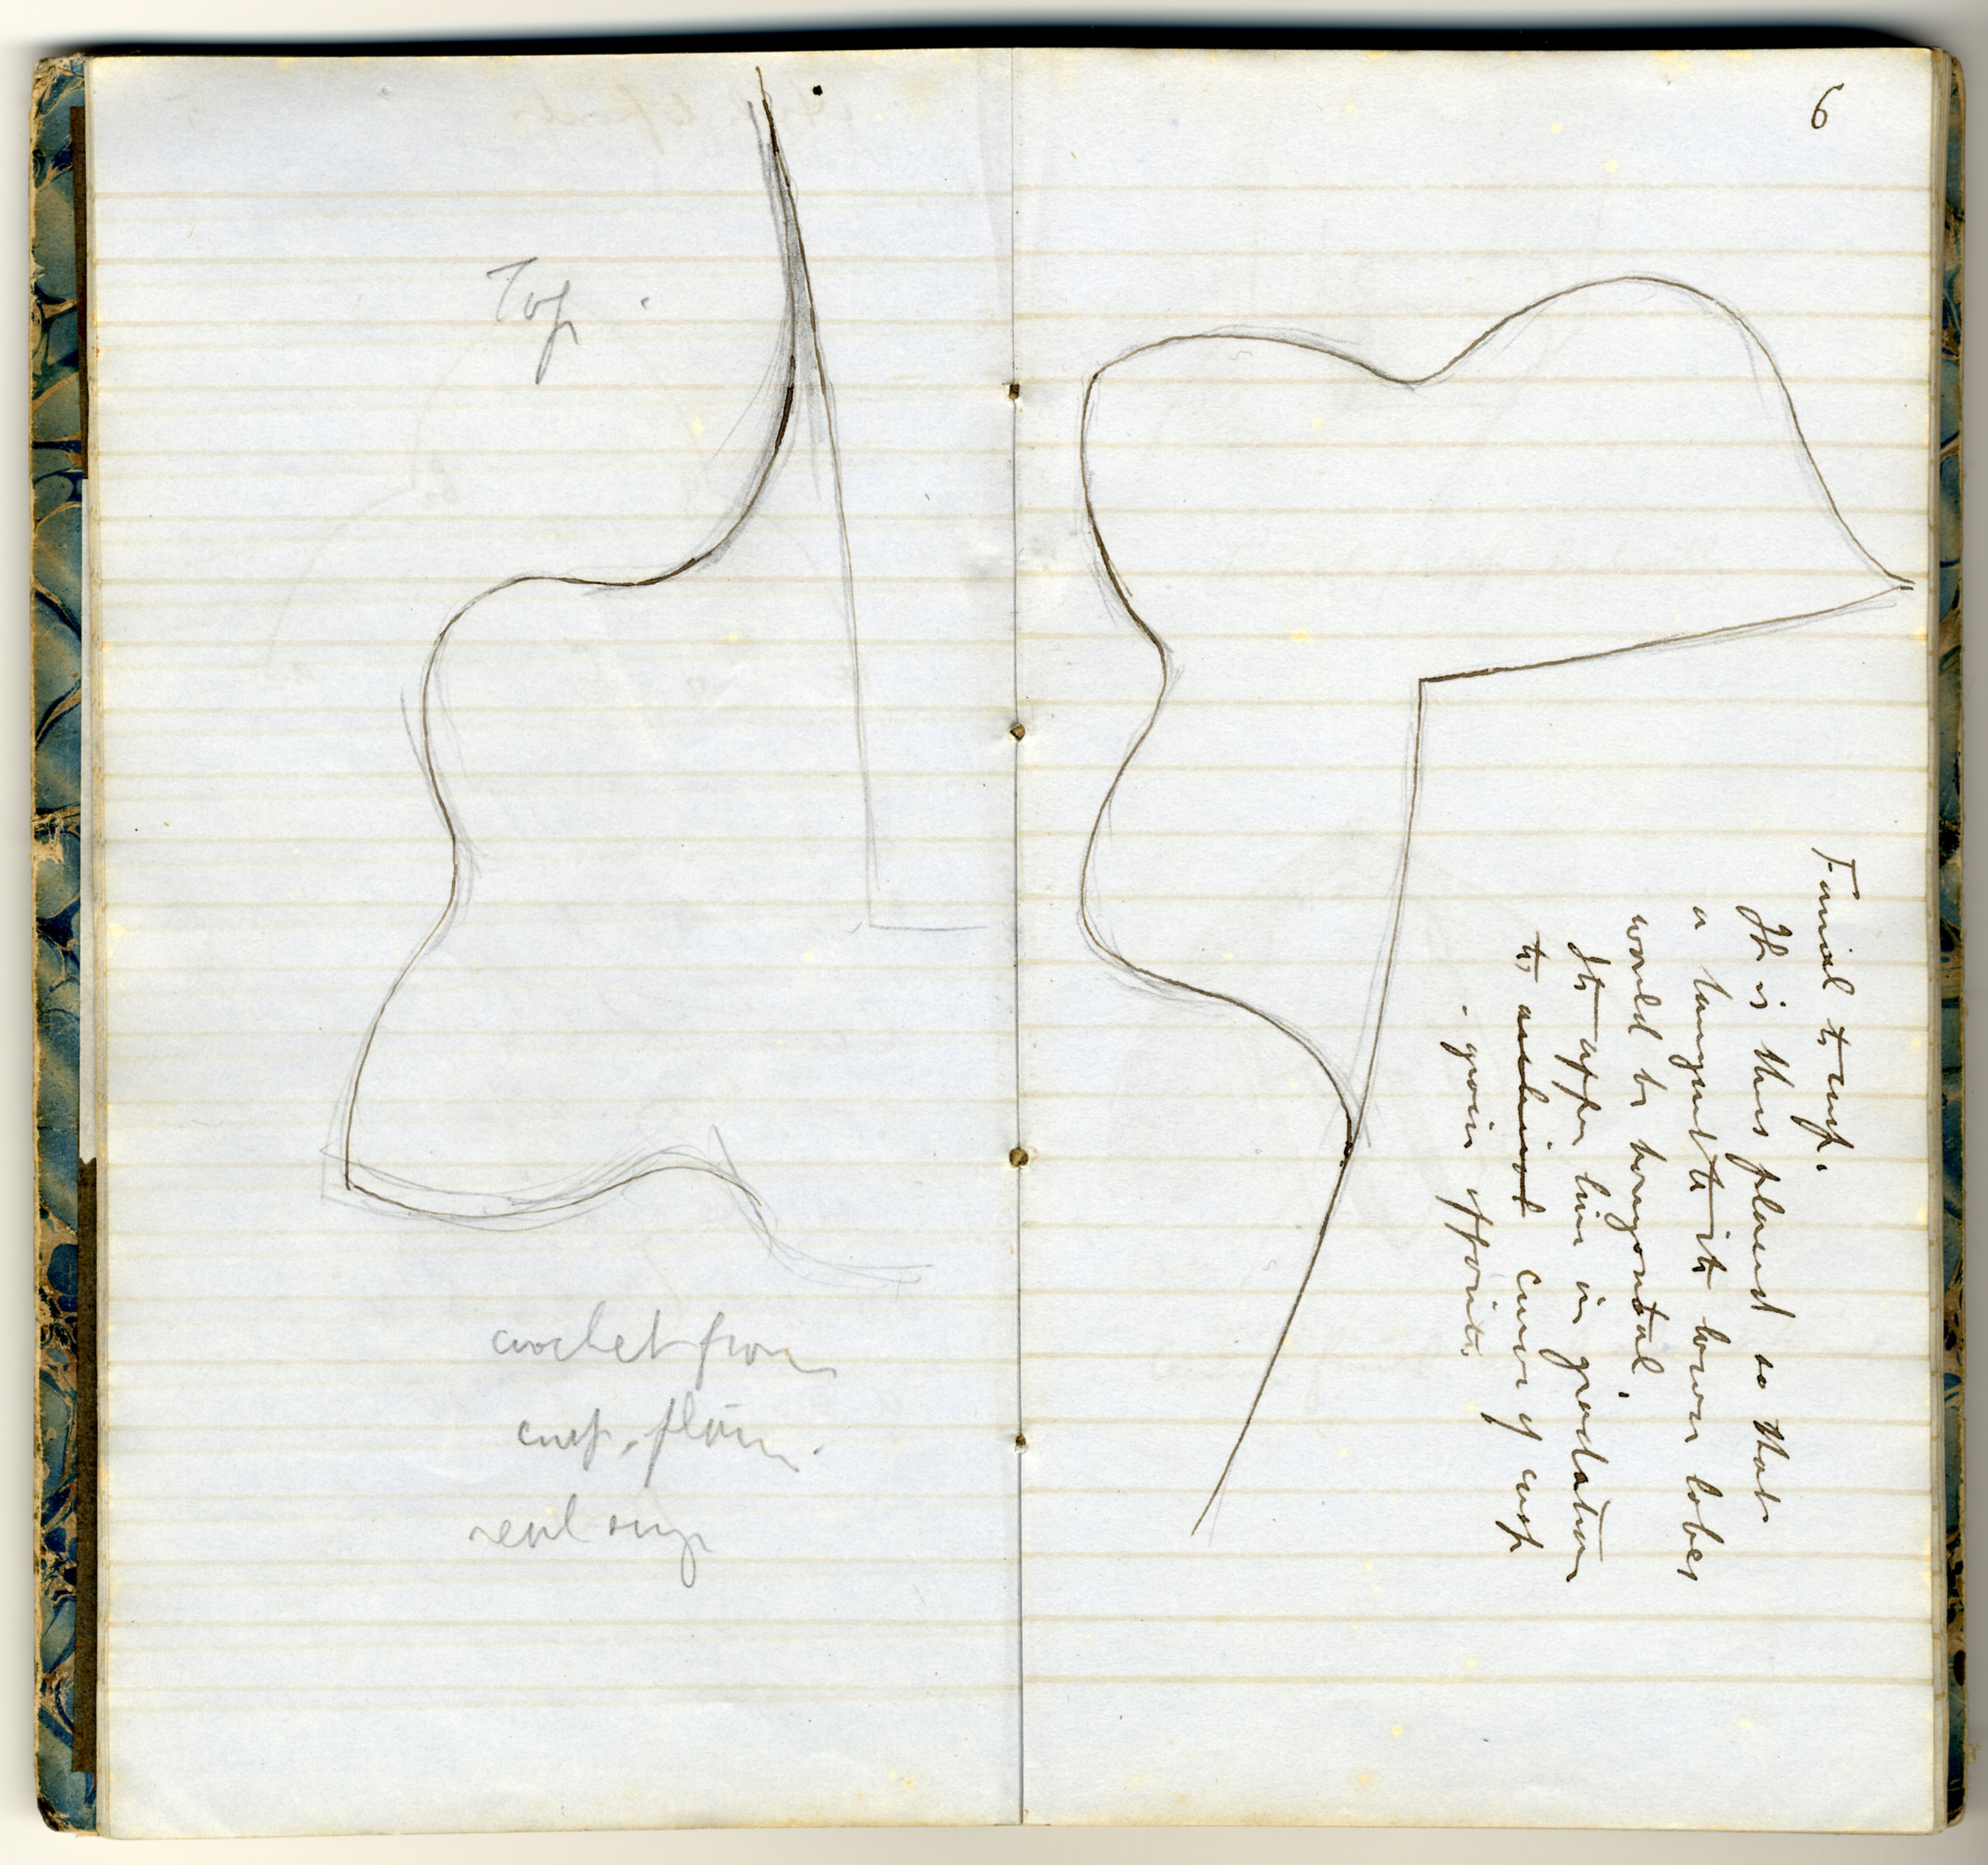 Top.
crochet from
cusp. plain.
real size
6
Finial to cusp.
It is thus placed so that
a tangent to its lower lobes
would be horizontal.
Its upper line in gradation
to curve of cusp
groin opposite